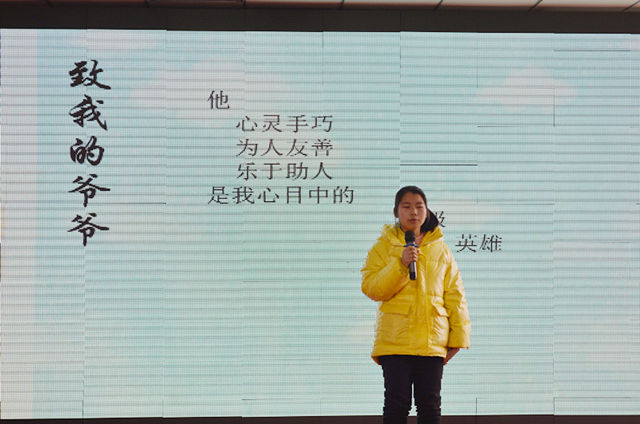 致我的爷爷
他
心灵手巧
为人友善
乐于助人
是我心目中的
级
英雄